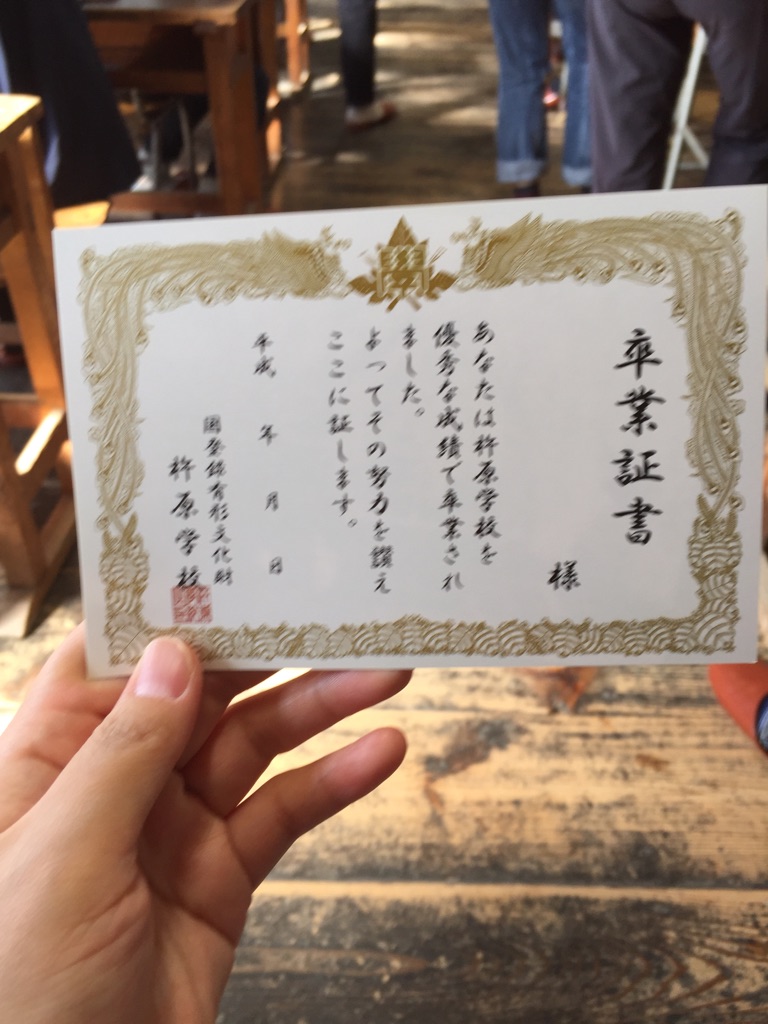 卒業証書
様
あなたは杵原学校を
優秀な成績で卒業され
ました。
よってその努力を讃え
ここに証します。
平成 年 月 日
国登録有形文化財
杵原学校